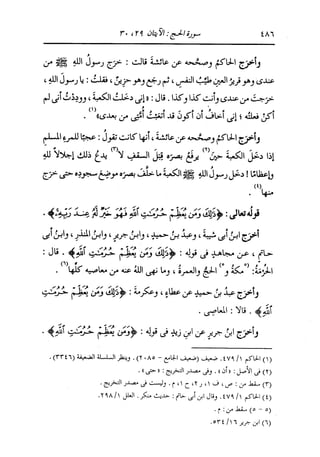 ٤٨٦ سورة الحج: الآيتان ٢٩، ٣٠
وأخرج الحاكم وصححه عن عائشة قالت: خرج رسول الله ﷺ من
عندى وهو قرير العين طيّب النفس، ثم رجع وهو حزين، فقلت: يا رسول الله،
خرجت من عندى وأنت كذا وكذا. قال: «إنى دخلت الكعبة، ووددت أنى لم
أكن فعلته؛ إنى أخاف أن أكون قد أتعبت أمتى من بعدى»(١).
وأخرج الحاكم وصححه عن عائشة، أنها كانت تقول: عجبًا للمرء المسلم
إذا دخل الكعبة حين(٢) يرفع بصره قبل السقف لا(٣) يدع ذلك إجلالًا لله
وإعظامًا! دخل رسول الله ﷺ الكعبة ما خلف بصره موضع سجوده حتى خرج
منها(٤).
قوله تعالى: ﴿ذَٰلِكَ وَمَن يُعَظِّمْ حُرُمَٰتِ ٱللَّهِ فَهُوَ خَيْرٌ لَّهُۥ عِندَ رَبِّهِۦ﴾.
أخرج ابن أبى شيبة، وعبد بن حميد، وابن جرير، وابن المنذر، وابن أبى
حاتم، عن مجاهد فى قوله: ﴿ذَٰلِكَ وَمَن يُعَظِّمْ حُرُمَٰتِ ٱللَّهِ﴾. قال:
الحرمة: (٥مكة و٥) الحج والعمرة، وما نهى الله عنه من معاصيه كلها(٦).
وأخرج عبد بن حميد عن عطاء، وعكرمة: ﴿ذَٰلِكَ وَمَن يُعَظِّمْ حُرُمَٰتِ
ٱللَّهِ﴾. قالا: المعاصى.
وأخرج ابن جرير عن ابن زيد فى قوله: ﴿وَمَن يُعَظِّمْ حُرُمَٰتِ ٱللَّهِ﴾.
(١) الحاكم ١/ ٤٧٩. ضعيف (ضعيف الجامع - ٢٠٨٥). وينظر السلسلة الضعيفة (٣٣٤٦).
(٢) فى الأصل: «أن». وفى مصدر التخريج: «حتى».
(٣) سقط من: ص، ف ١، ر ٢، ح ١، م. وليست فى مصدر التخريج.
(٤) الحاكم ١/ ٤٧٩. وقال ابن أبى حاتم: حديث منكر. العلل ١/ ٢٩٨.
(٥ - ٥) سقط من: م.
(٦) ابن جرير ١٦/ ٥٣٤.